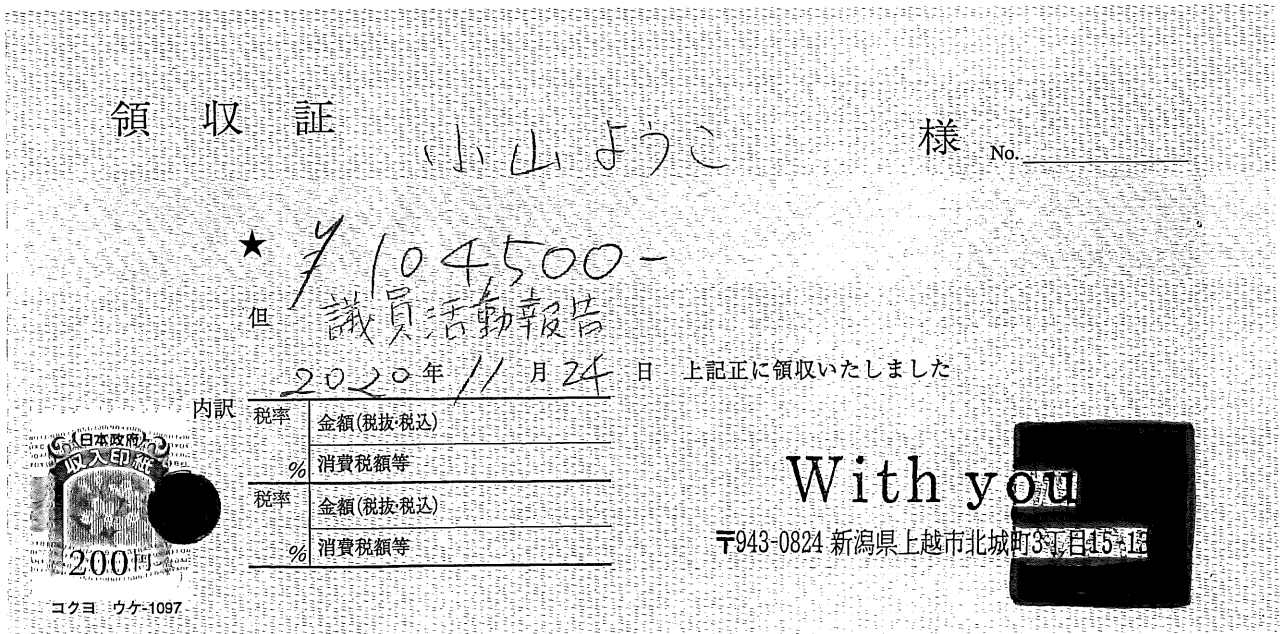 領収証
小山ようこ 様 No.
★ ¥104,500-
但 議員活動報告
2020年11月24日 上記正に領収いたしました
内訳 税率 金額(税抜・税込)
% 消費税額等
税率 金額(税抜・税込)
% 消費税額等
日本政府
収入印紙
200円
コクヨ ウケ-1097
With you
〒943-0824 新潟県上越市北城町3丁目15-13